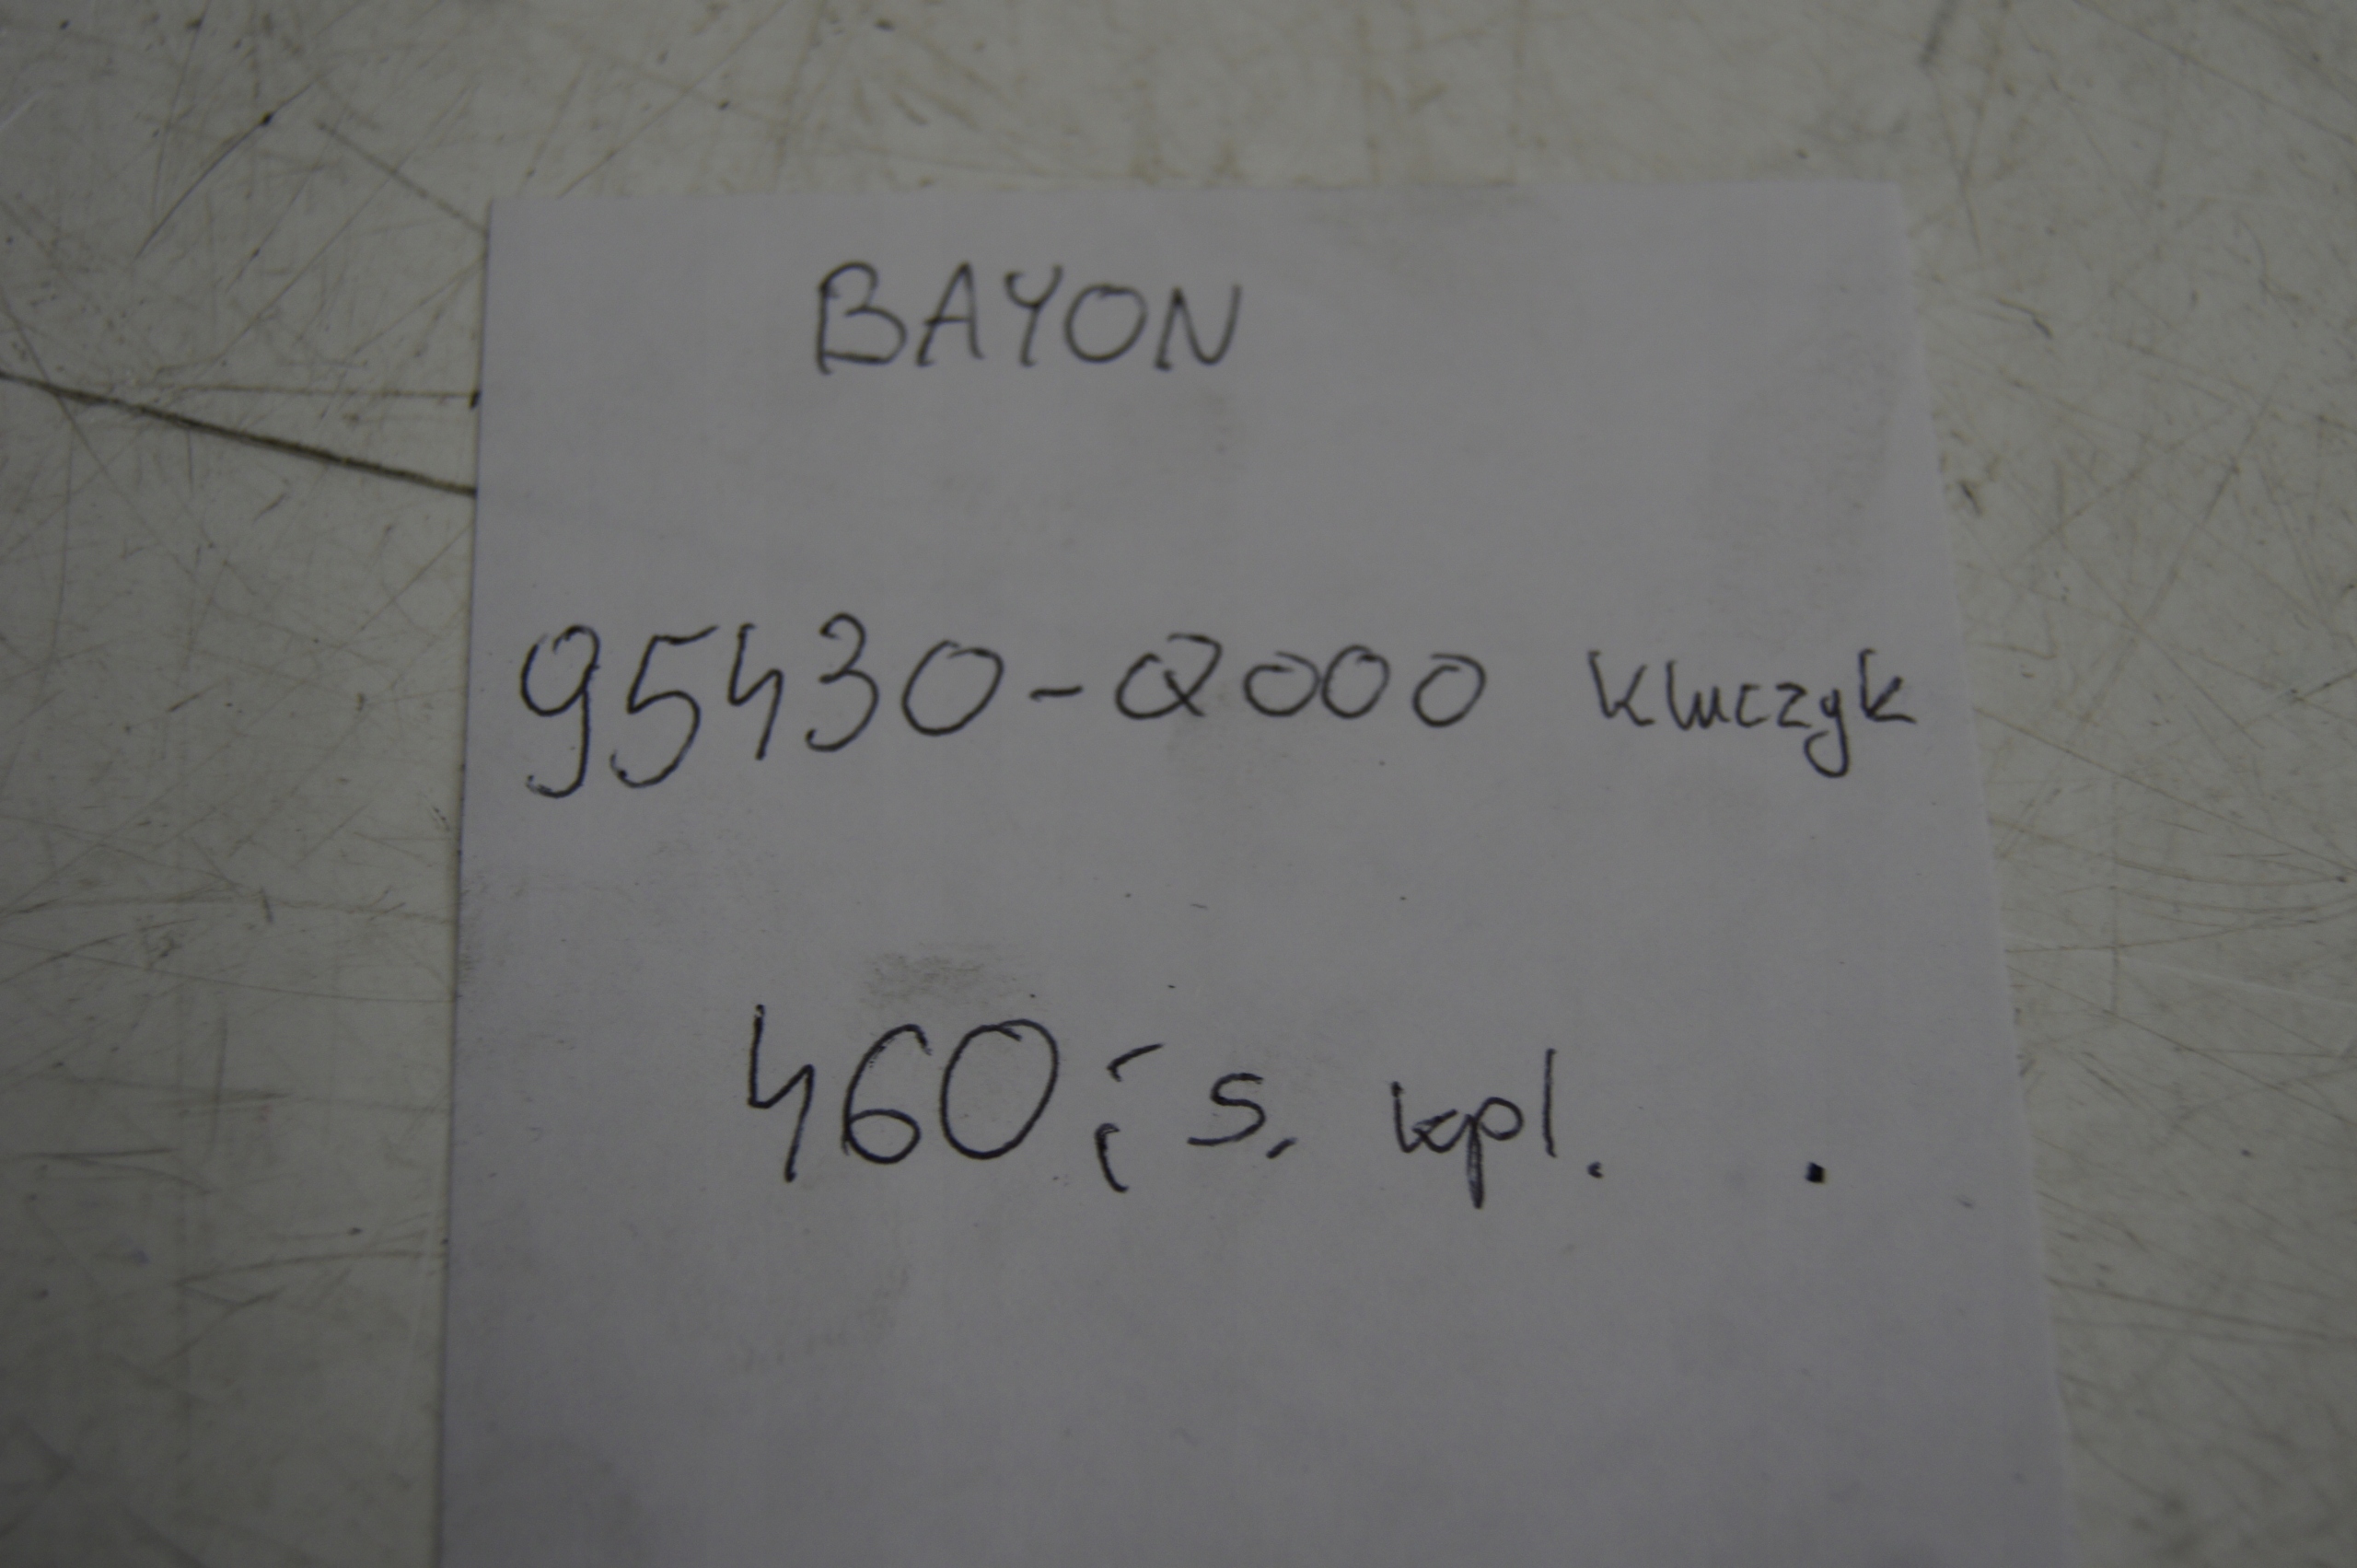 BAYON
95430-Q000 kluczyk
460,- s. kpl.